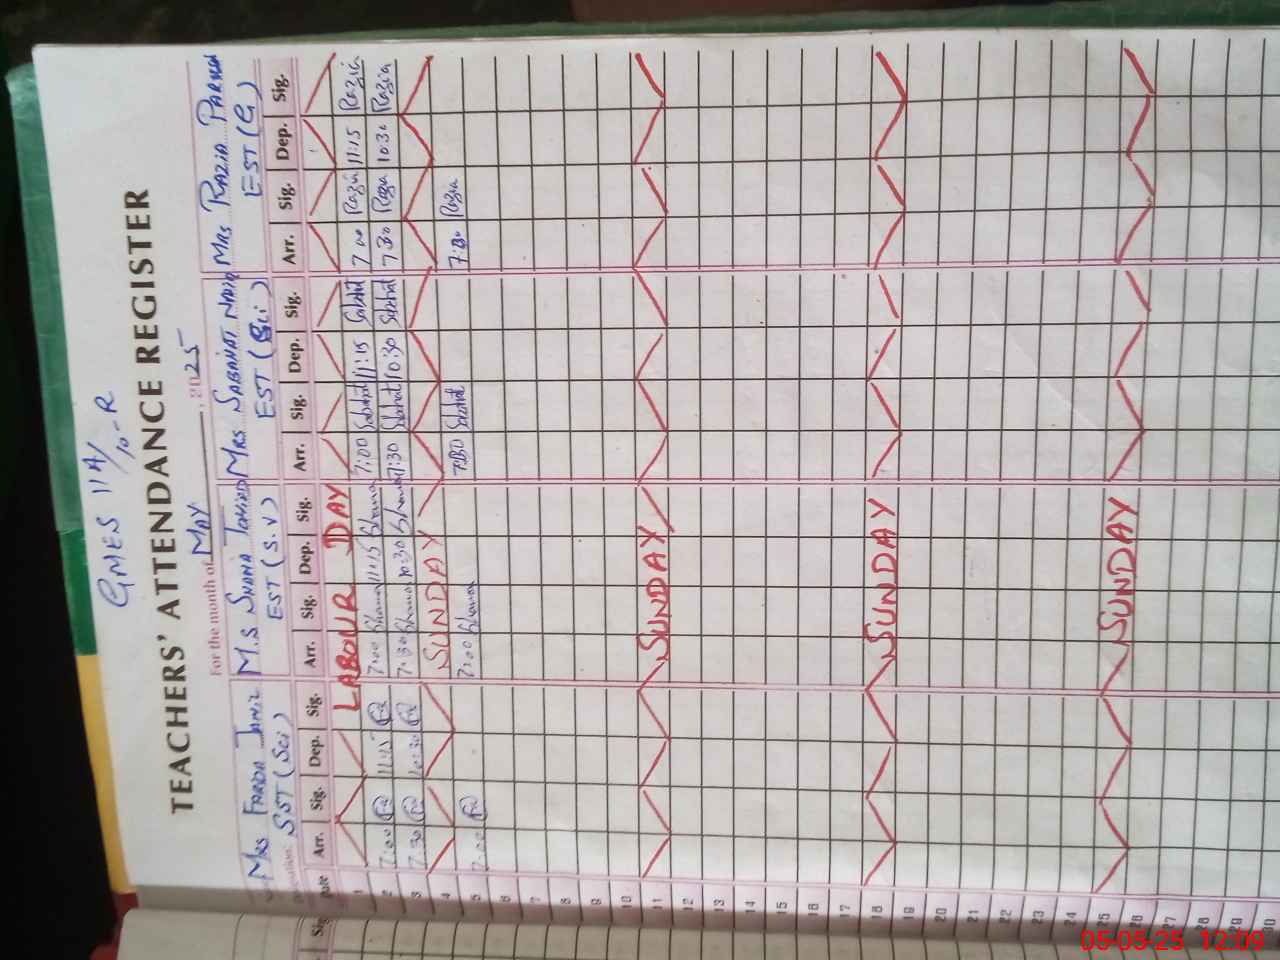 GMES 11A/
10-R
TEACHERS' ATTENDANCE REGISTER
For the month of MAY, 2025
Mrs FARIDA M.S SHAMA Mrs SABAHAT Mrs RAZIA
SST (Sci) EST (S.V) EST (Sci) EST (G)
Date Arr. Sig. Dep. Sig. Arr. Sig. Dep. Sig. Arr. Sig. Dep. Sig. Arr. Sig. Dep. Sig.
1 LABOUR DAY
2 7:00 11:15 7:00 Shama 11:15 Shama 7:00 Sabahat 11:15 Sabahat 7:00 Razia 11:15 Razia
3 7:30 10:30 7:30 Shama 10:30 Shama 7:30 Sabahat 10:30 Sabahat 7:30 Razia 10:30 Razia
4 SUNDAY
5 7:00 7:00 Shama 7:30 Sabahat 7:30 Razia
6
7
8
9
10
11 SUNDAY
12
13
14
15
16
17
18 SUNDAY
19
20
21
22
23
24
25 SUNDAY
26
27
28
29
30
05-05-25 12:09